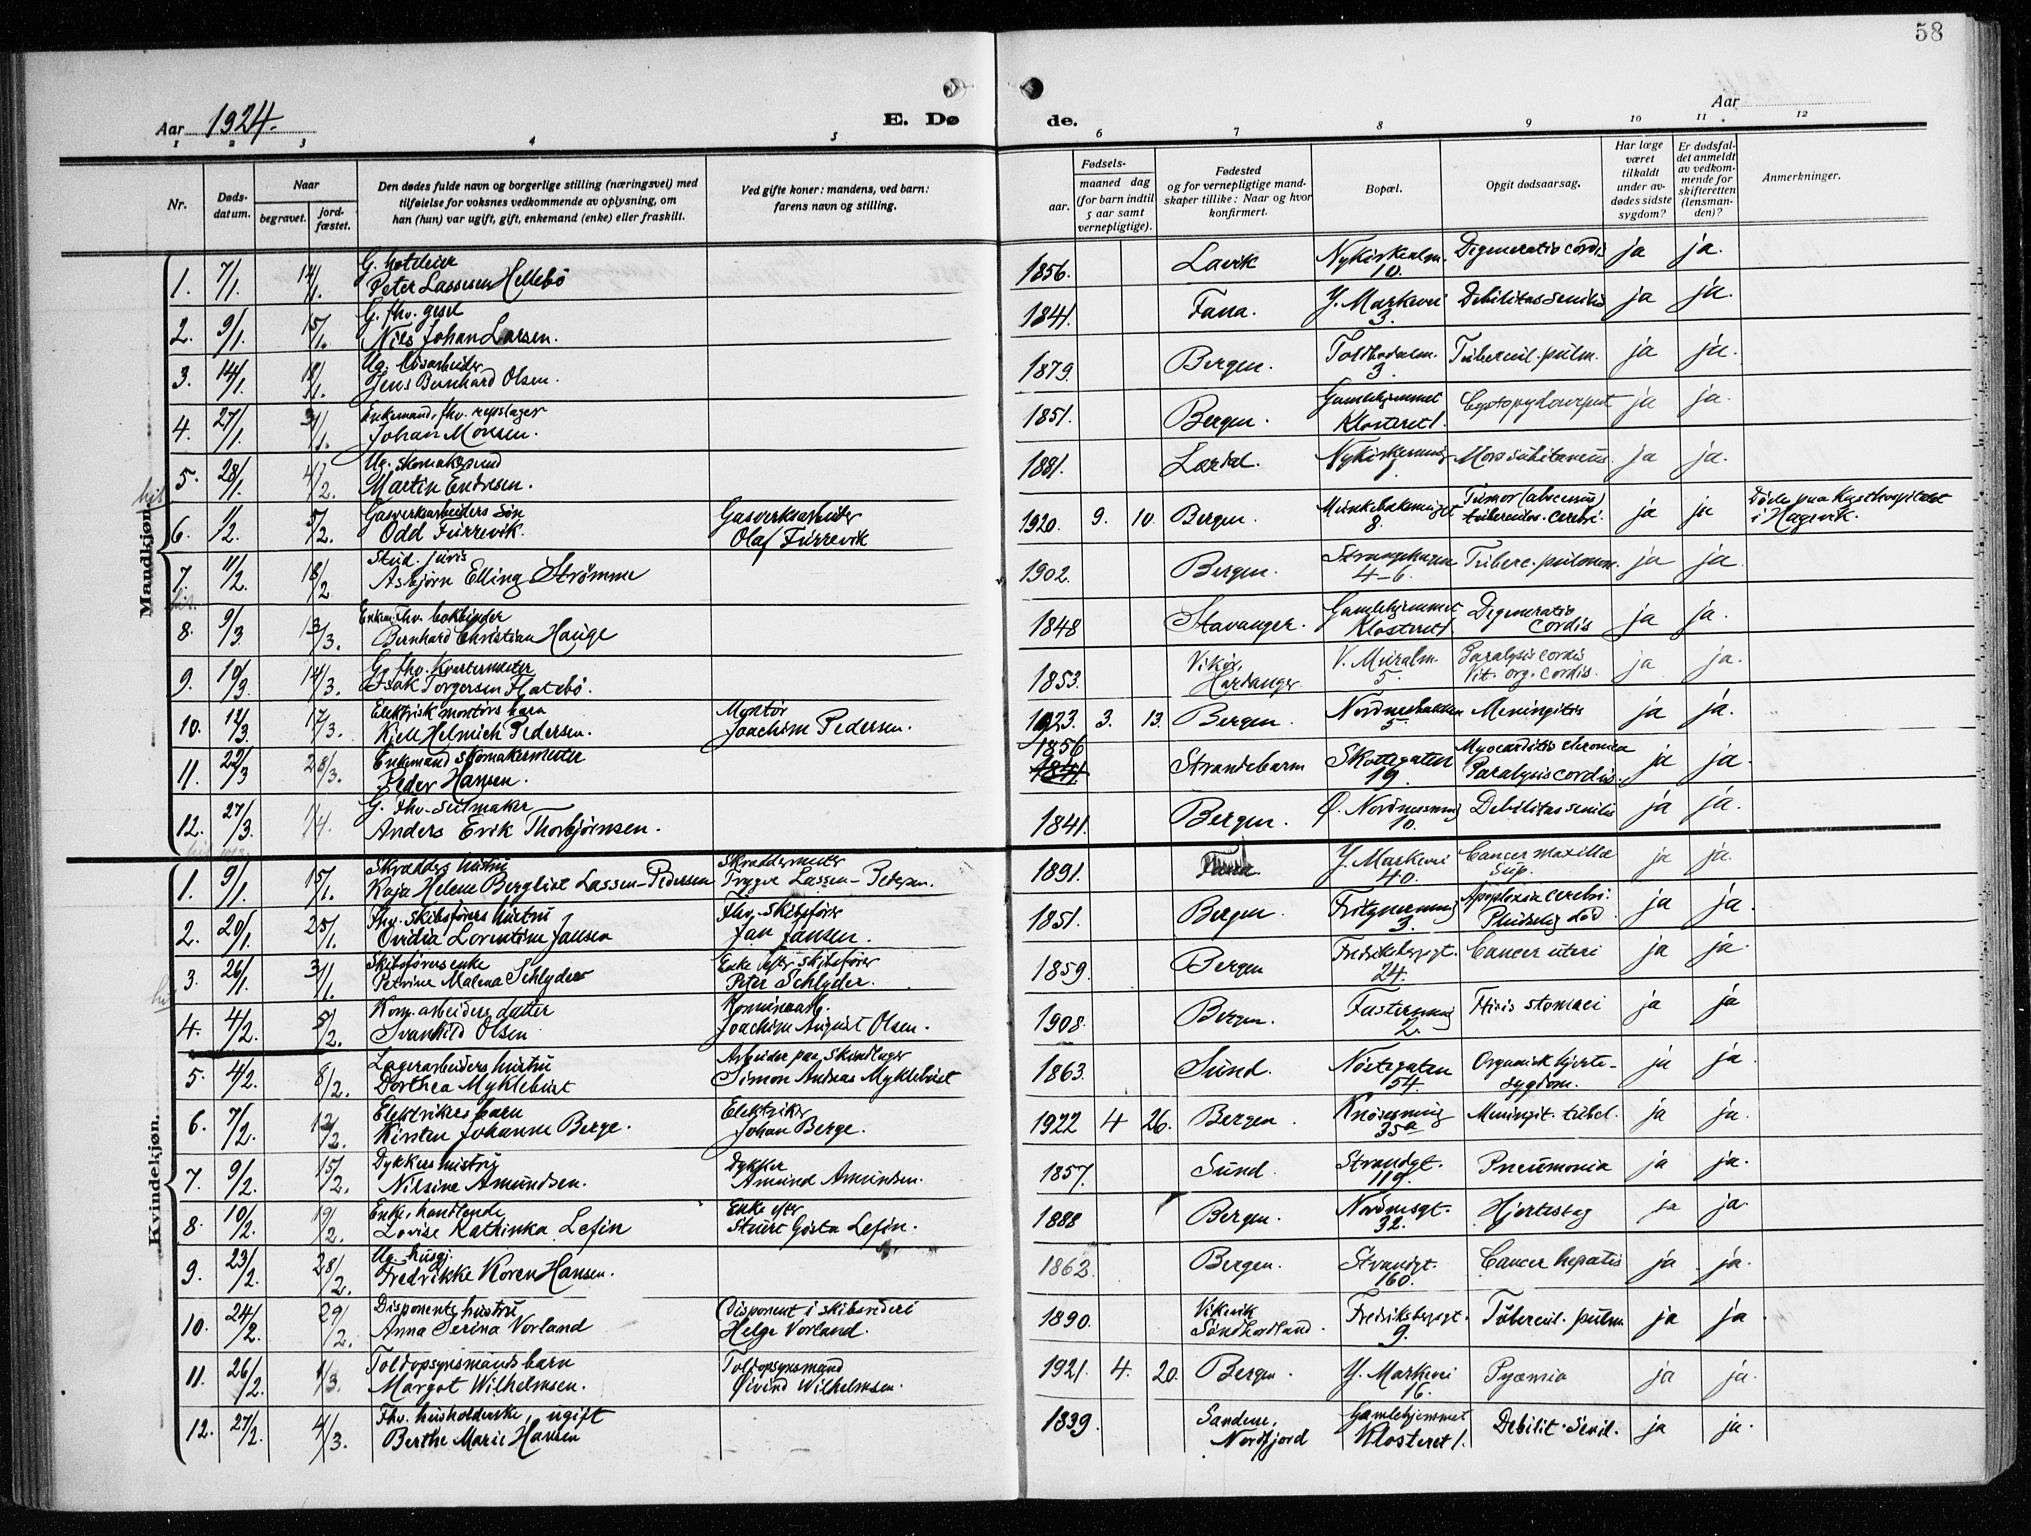 58
Aar 1924.
E. Dø
de.
Aar
1 2 3 4 5 6 7 8 9 10 11 12
Nr.
Døds-
datum.
Naar
begravet.
jord-
fæstet.
Den dødes fulde navn og borgerlige stilling (næringsvei) med
tilføielse for voksnes vedkommende av oplysning, om
han (hun) var ugift, gift, enkemand (enke) eller fraskilt.
Ved gifte koner: mandens, ved barn:
farens navn og stilling.
Fødsels-
aar.
maaned dag
(for barn indtil
5 aar samt
vernepligtige).
Fødested
og for vernepligtige mand-
skaper tillike: Naar og hvor
konfirmert.
Bopæl.
Opgit dødsaarsag.
Har læge
været
tilkaldt
under av-
dødes sidste
sygdom?
Er dødsfal-
det anmeldt
av vedkom-
mende for
skifteretten
(lensman-
den)?
Anmerkninger.
Mandkjøn.
1. 7/1. 14/1. G. hoteleier
Peter Lassesen Hellebö 1856. Lavik Nykirkealm. 10. Degeneratio cordis ja ja.
2. 9/1. 15/1. G. fhv. gesel
Nils Johan Larsen. 1841. Fana. Y. Markevei 3. Debilitas senilis ja ja.
3. 14/1. 18/1. Ug. løsarbeider
Jens Bernhard Olsen. 1879. Bergen. Toldbodalm. 3. Tubercul. pulm. ja ja.
4. 27/1. 31/1. Enkemand, fhv. repslager
Johan Monsen. 1851. Bergen. Gamlehjemmet Klosteret 1. ja ja.
5. 28/1. 4/2. Ug. skomakersvend
Martin Endresen. 1881. Lærdal. Mors subitaneus ja ja.
6. 1/2. 5/2. Gasverksarbeiders søn
Odd Furrevik. Gasverksarbeider
Olaf Furrevik 1920. 9. 10. Bergen. 8. Tumor (abscessus)
tuberculos. cerebri. ja ja Døde paa Kysthospitalet
i Hagevik.
7. 11/2. 18/2 Stud. juris
Asbjørn Elling Strømme 1902. Bergen. Strangehagen 4-6. Tuberc. pulmon. ja ja.
8. 9/3 13/3. Enkem. fhv. bokbinder
Bernhard Christian Hauge 1848 Stavanger. Gamlehjemmet Klosteret 1. Degeneratio
cordis ja ja.
9. 10/3. 14/3. G. fhv. kvartermester
Isak Torgersen Flatebö. 1853. Vikör, Hardanger V. Muralm. 5. Paralysis cordis
Vit. org. cordis. ja ja.
10. 12/3. 17/3. Elektrisk montørs barn
Kjell Helmich Pedersen. Montör
Joachim Pedersen. 1923. 3. 13. Bergen. Nordnesbakken 5. Meningitis ja ja.
11. 22/3 28/3. Enkemand skomakermester
Peder Hansen. 1856 1841 Strandebarm Skottegaten 19. Myocarditis chronica
Paralysis cordis. ja ja.
12. 27/3. 1/4. G. fhv. seilmaker
Anders Erik Thorbjørnsen. 1841. Bergen. Ø. Nordnesvei 10. Debilitas senilis ja ja.
Kvindekjøn.
1. 9/1. 15/1. Skrædders hustru
Kaja Helene Bergliot Lassen-Pedersen Skræddermester
Trygve Lassen-Pedersen. 1891. Y. Markevei 40. Cancer maxillæ
sup. ja ja.
2. 20/1. 25/1. Fhv. skibsførers hustru
Ovidia Lorentine Jansen Fhv. skibsfører
Jan Jansen. 1851. Bergen. 3. Apoplexia cerebri.
Pludselig død ja ja.
3. 26/1. 31/1. Skibsførers enke
Petrine Malena Schlyder Enke efter skibsfører
Peter Schlyder. 1859. Bergen Fredriksbergsgt. 24. Cancer uteri ja ja.
4. 4/2. 5/2. Kom. arbeiders datter
Svanhild Olsen Kommunearb.
Joachim August Olsen. 1908. Bergen. 2. stomaci ja ja
5. 4/2. 8/2. Lagerarbeiders hustru
Dorthea Myklebust Arbeider paa skindlager
Simon Andreas Myklebust 1863. Sund. Nøstegaten 54. Organisk hjerte-
sygdom. ja ja.
6. 7/2. 12/2. Elektrikers barn
Kirsten Johanne Berge. Elektriker
Johan Berge. 1922 4 26. Bergen. Knøsesmug 35a Meningit. tubel. ja ja.
7. 9/2. 15/2. Dykkers hustru
Nilsine Amundsen. Dykker
Amund Amundsen. 1857. Sund. Strandgt. 119. Pneumonia ja ja.
8. 10/2. 19/2. Enke, handlende
Lovise Kathinka Lefin Enke efter
Sture Gösta Lefin. 1888 Bergen. Nordnesgt. 32. Hjerteslag ja ja
9. 23/2. 28/2. Ug. husgj.
Fredrikke Koren Hansen. 1862. Bergen. Strandgt. 160. Cancer hepatis ja ja.
10. 24/2. 29/2. Disponents hustru
Anna Serina Vorland Disponent i skibsrederi
Helge Vorland. 1890. Vikevik Söndhordland. Fredriksbergsgt. 9. Tubercul. pulm. ja ja
11. 26/2. 1/3. Toldopsynsmands barn
Margot Wilhelmsen. Toldopsynsmand
Øivind Wilhelmsen. 1921. 4. 20. Bergen Y. Markevei 16. Pyæmia ja ja.
12. 27/2. 4/3. Fhv. husholderske, ugift
Berthe Marie Hansen 1839. Sandene, Nordfjord Gamlehjemmet Klosteret 1. Debilit. senil. ja ja.